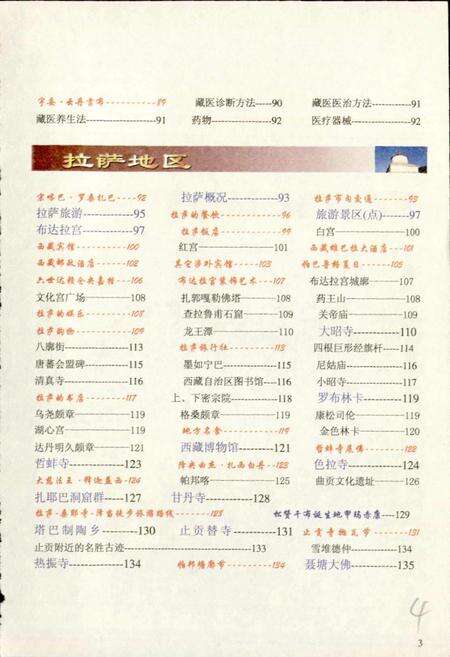 宇妥·云丹贡布----------89 藏医诊断方法-----90 藏医医治方法------91
藏医养生法---------------91 药物---------------92 医疗器械-----------92
拉萨地区
宗喀巴·罗桑扎巴----92 拉萨概况--------93 拉萨市内交通----93
拉萨旅游------------95 拉萨的餐饮--------96 旅游景区(点)------97
布达拉宫------------97 拉萨饭店----------99 白宫--------------100
西藏宾馆----------100 红宫--------------101 西藏雄巴拉大酒店---101
西藏邮政酒店------102 其它涉外宾馆-----103 帕巴鲁格夏日------105
六世达赖仓央嘉措---106 布达拉宫装饰艺术---107 布达拉宫城廓------107
文化宫广场--------108 扎郭嘎勒佛塔------108 药王山-----------108
拉萨的娱乐--------108 查拉鲁甫石窟-----109 关帝庙-----------109
拉萨购物----------109 龙王潭-----------110 大昭寺---------110
八廓街-----------113 拉萨旅行社------113 四根巨形经旗杆----114
唐蕃会盟碑-------115 墨如宁巴---------115 尼姑庙-----------116
清真寺-----------116 西藏自治区图书馆---116 小昭寺-----------117
拉萨的书店------117 上、下密宗院------118 罗布林卡-------119
乌尧颇章---------119 格桑颇章---------119 康松司伦---------119
湖心宫-----------119 地方名食--------119 金色林卡---------120
达丹明久颇章-----121 西藏博物馆-----121 哲蚌寺展佛------122
哲蚌寺----------123 降央曲杰·扎西白丹---123 色拉寺---------124
大慈法王·释迦益西---124 帕邦喀-----------125 曲贡文化遗址-----126
扎耶巴洞窟群----127 甘丹寺---------128
拉萨·桑耶寺·泽当徒步旅游路线-----128 松赞干布诞生地甲玛赤康---129
塔巴制陶乡--------130 止贡替寺--------131 止贡寺颇瓦节----131
止贡附近的名胜古迹---------------------133 雪堆德仲---------134
热振寺----------134 帕邦塘廓节------134 聂塘大佛-------135
4
3